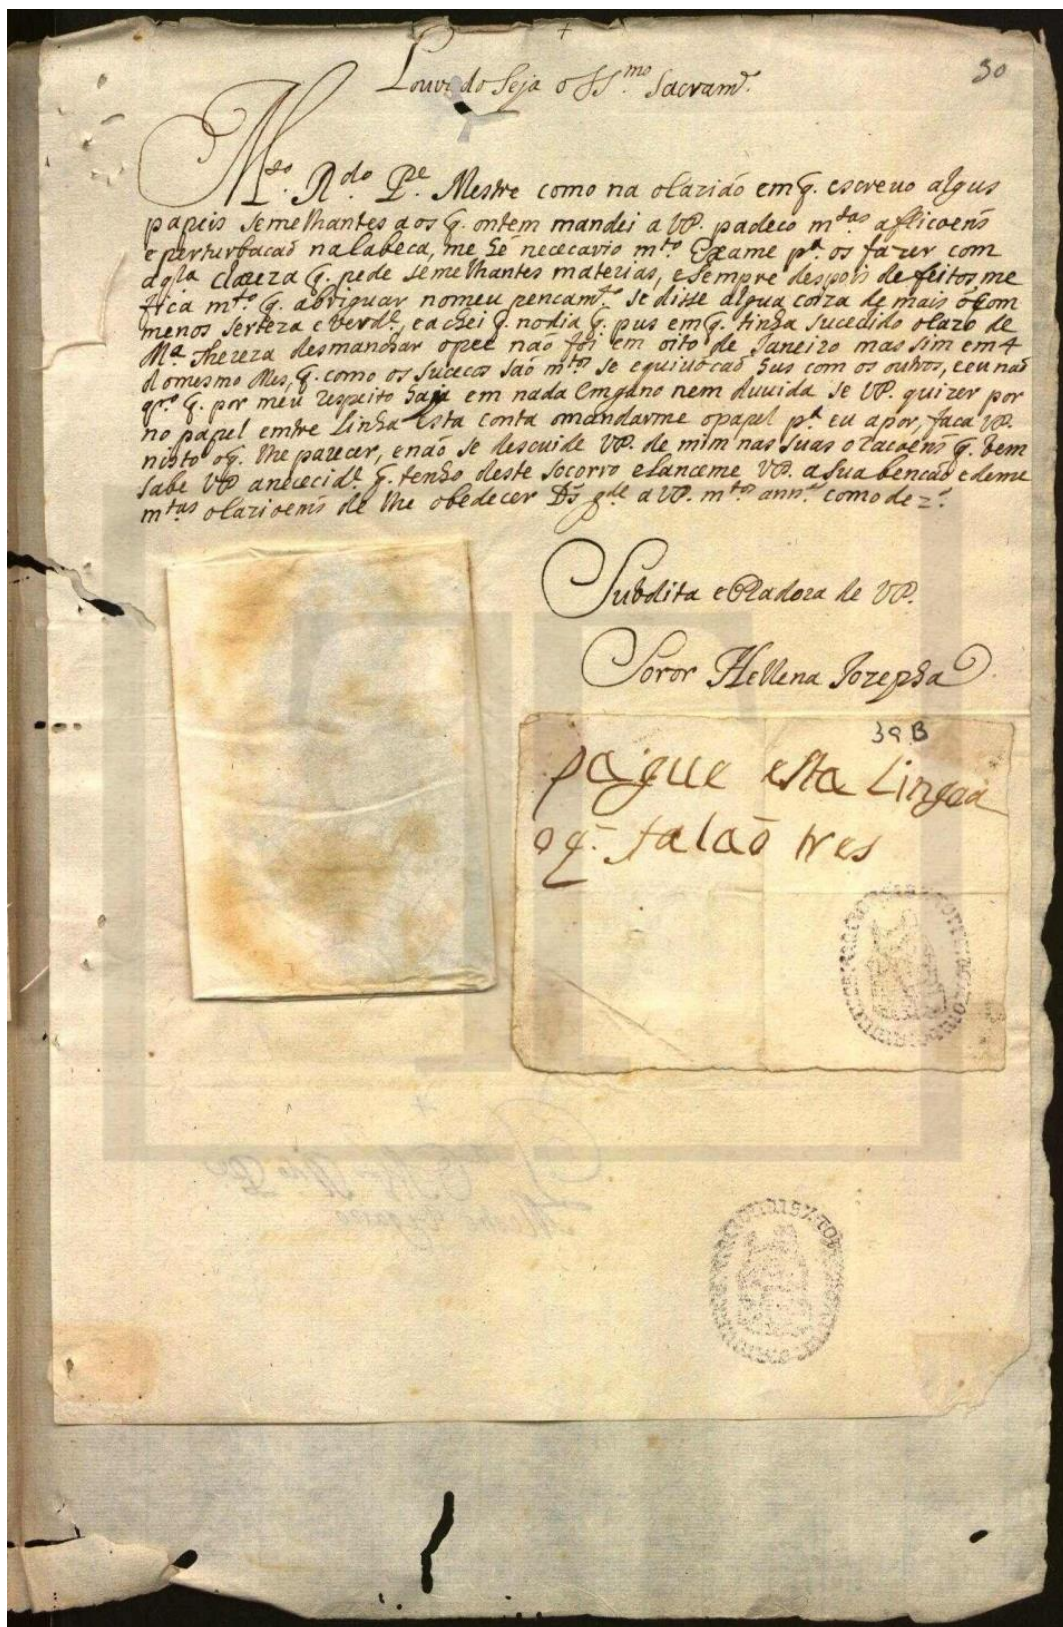 30
Louvado Seja o SS.mo Sacram.to
M.to R.do P.e Mestre como na ocazião em q̃. escrevo algus
papeis semelhantes aos q̃. ontem mandei a VP. padeco m.tas afflicoens
e perturbacaõ na Cabeca, me he nececario m.to Exame p.a os fazer com
aq.la clareza q̃. pede semelhantes materias, e sempre despois de feitos, me
fica m.to q̃. abriguar no meu pencam.to se disse algua coiza de mais ô Com
menos serteza e verd.e, e achei q̃. no dia q̃. pus em q̃. tinha sucedido o cazo de
M.a Thereza desmanchar o pee não foi em oito de Janeiro mas sim em 4
do mesmo Mes, q̃. como os sucecos são m.tos se equivocaõ hus com os outros, e eu naõ
q.ro q̃. por meu respeito haja em nada Emgano nem duvida se VP. quizer por
no papel emtre Linha esta conta o mandarme o papel p.a eu a por, faca VP.
nisto o q̃. lhe parecer, e não se descuide VP. de mim nas suas oracoens q̃. bem
sabe VP a nececid.e q̃. tenho deste socorro e lanceme VP. a sua bencaõ e deme
m.tas ocazioens de lhe obedecer D̃s g.de a VP. m.tos ann.s como dez.o
Subdita e Oradora de VP.
Soror Hellena Jozepha
39 B
pague esta Lingoa
o q̃. falaõ tres